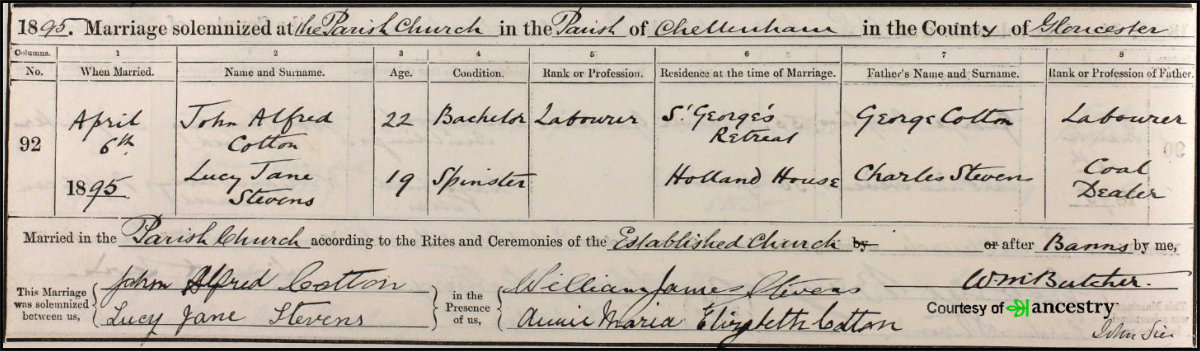 1895. Marriage solemnized at the Parish Church in the Parish of Cheltenham in the County of Gloucester
Columns. 1 2 3 4 5 6 7 8
No. When Married. Name and Surname. Age. Condition. Rank or Profession. Residence at the time of Marriage. Father's Name and Surname. Rank or Profession of Father.
April John Alfred 22 Bachelor Labourer St George's George Cotton Labourer
6th Cotton Retreat
92
1895 Lucy Jane 19 Spinster Holland House Charles Stevens Coal
Stevens Dealer
Married in the Parish Church according to the Rites and Ceremonies of the Established Church by or after Banns by me,
This Marriage was solemnized between us, John Alfred Cotton in the Presence of us, William James Stevens W M Butcher.
Lucy Jane Stevens Annie Maria Elizabeth Cotton
Courtesy of ancestry
John